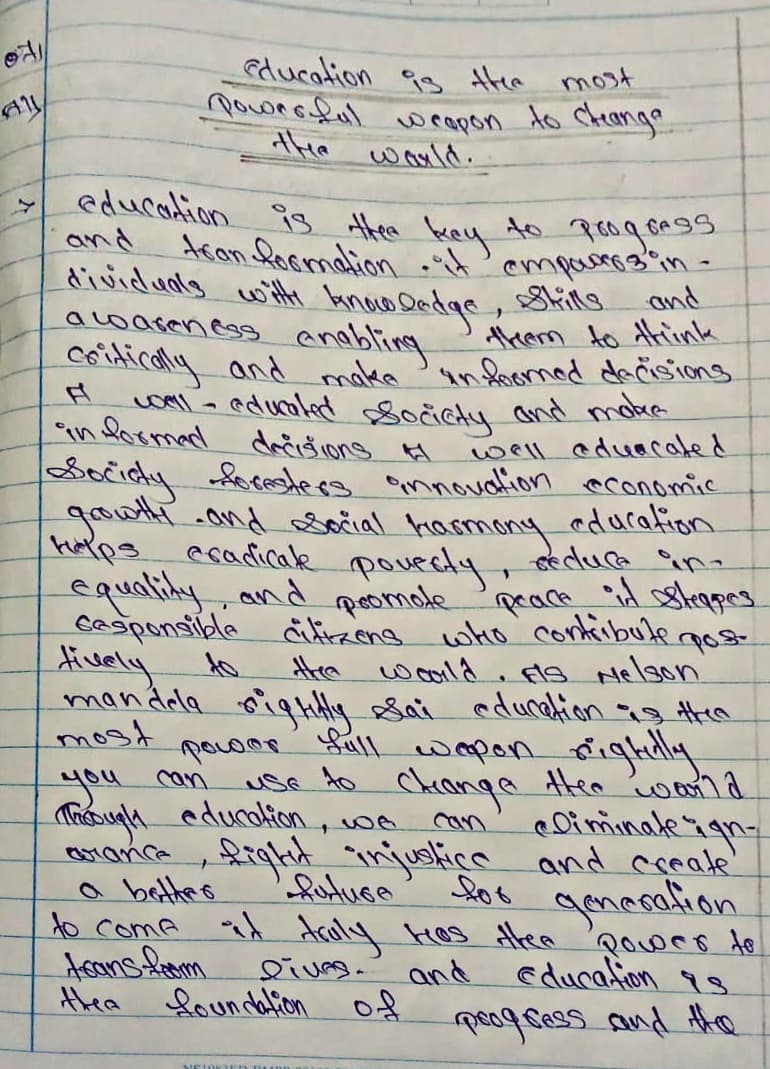 education is the most
powerful weapon to change
the world.
→ education is thee key to progress
and transformation . it empowers in-
dividuals with knowledge, skills and
awareness enabling them to think
critically and make informed decisions
A well - educated society and make
informed decisions A well eduacated
society foresters innovation economic
growth . and social harmony education
helps eradicate poverty, reduce in-
equality, and promote peace it shapes
responsible citizens who contribute pos-
tively to thea world . As Nelson
mandela rightly sai education is thea
most power full weapon rightly
you can use to change thee world
Through education, we can eliminate ign-
orance, fight injustice and create
a better future for generation
to come it truly has thee power to
transform lives. and education is
thea foundation of progress and the